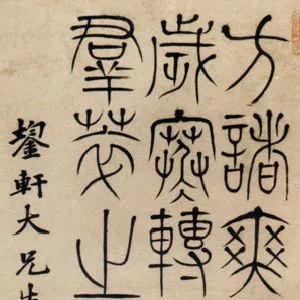 方諸爽
歲寒轉
羣芳
軒大兄